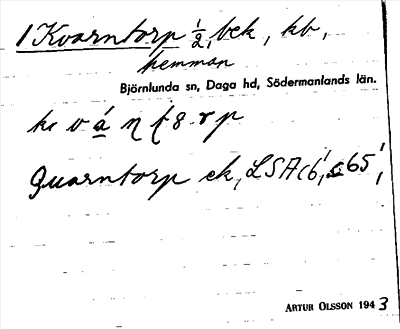 1 Kvarntorp 1/2, bek, kb,
hemman
Björnlunda sn, Daga hd, Södermanlands län.
Quarntorp ek, LSA
ARTUR OLSSON 1943